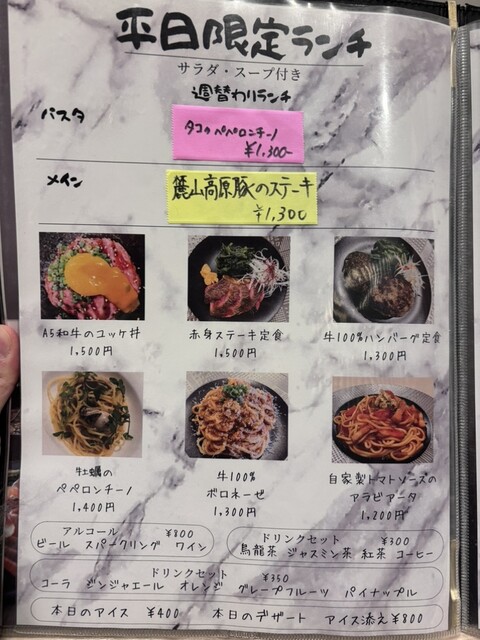 平日限定ランチ
サラダ・スープ付き
週替わりランチ
パスタ
タコのペペロンチーノ
¥1.300-
メイン
麓山高原豚のステーキ
¥1,300
A5和牛のユッケ丼
1.500円
赤身ステーキ定食
1.500円
牛100%ハンバーグ定食
1.300円
牡蠣の
ペペロンチーノ
1.400円
牛100%
ボロネーゼ
1.300円
自家製トマトソースの
アラビアータ
1.200円
アルコール ¥800
ビール スパークリング ワイン
ドリンクセット ¥300
烏龍茶 ジャスミン茶 紅茶 コーヒー
ドリンクセット ¥350
コーラ ジンジャエール オレンジ グレープフルーツ パイナップル
本日のアイス ¥400 本日のデザート アイス添え¥800